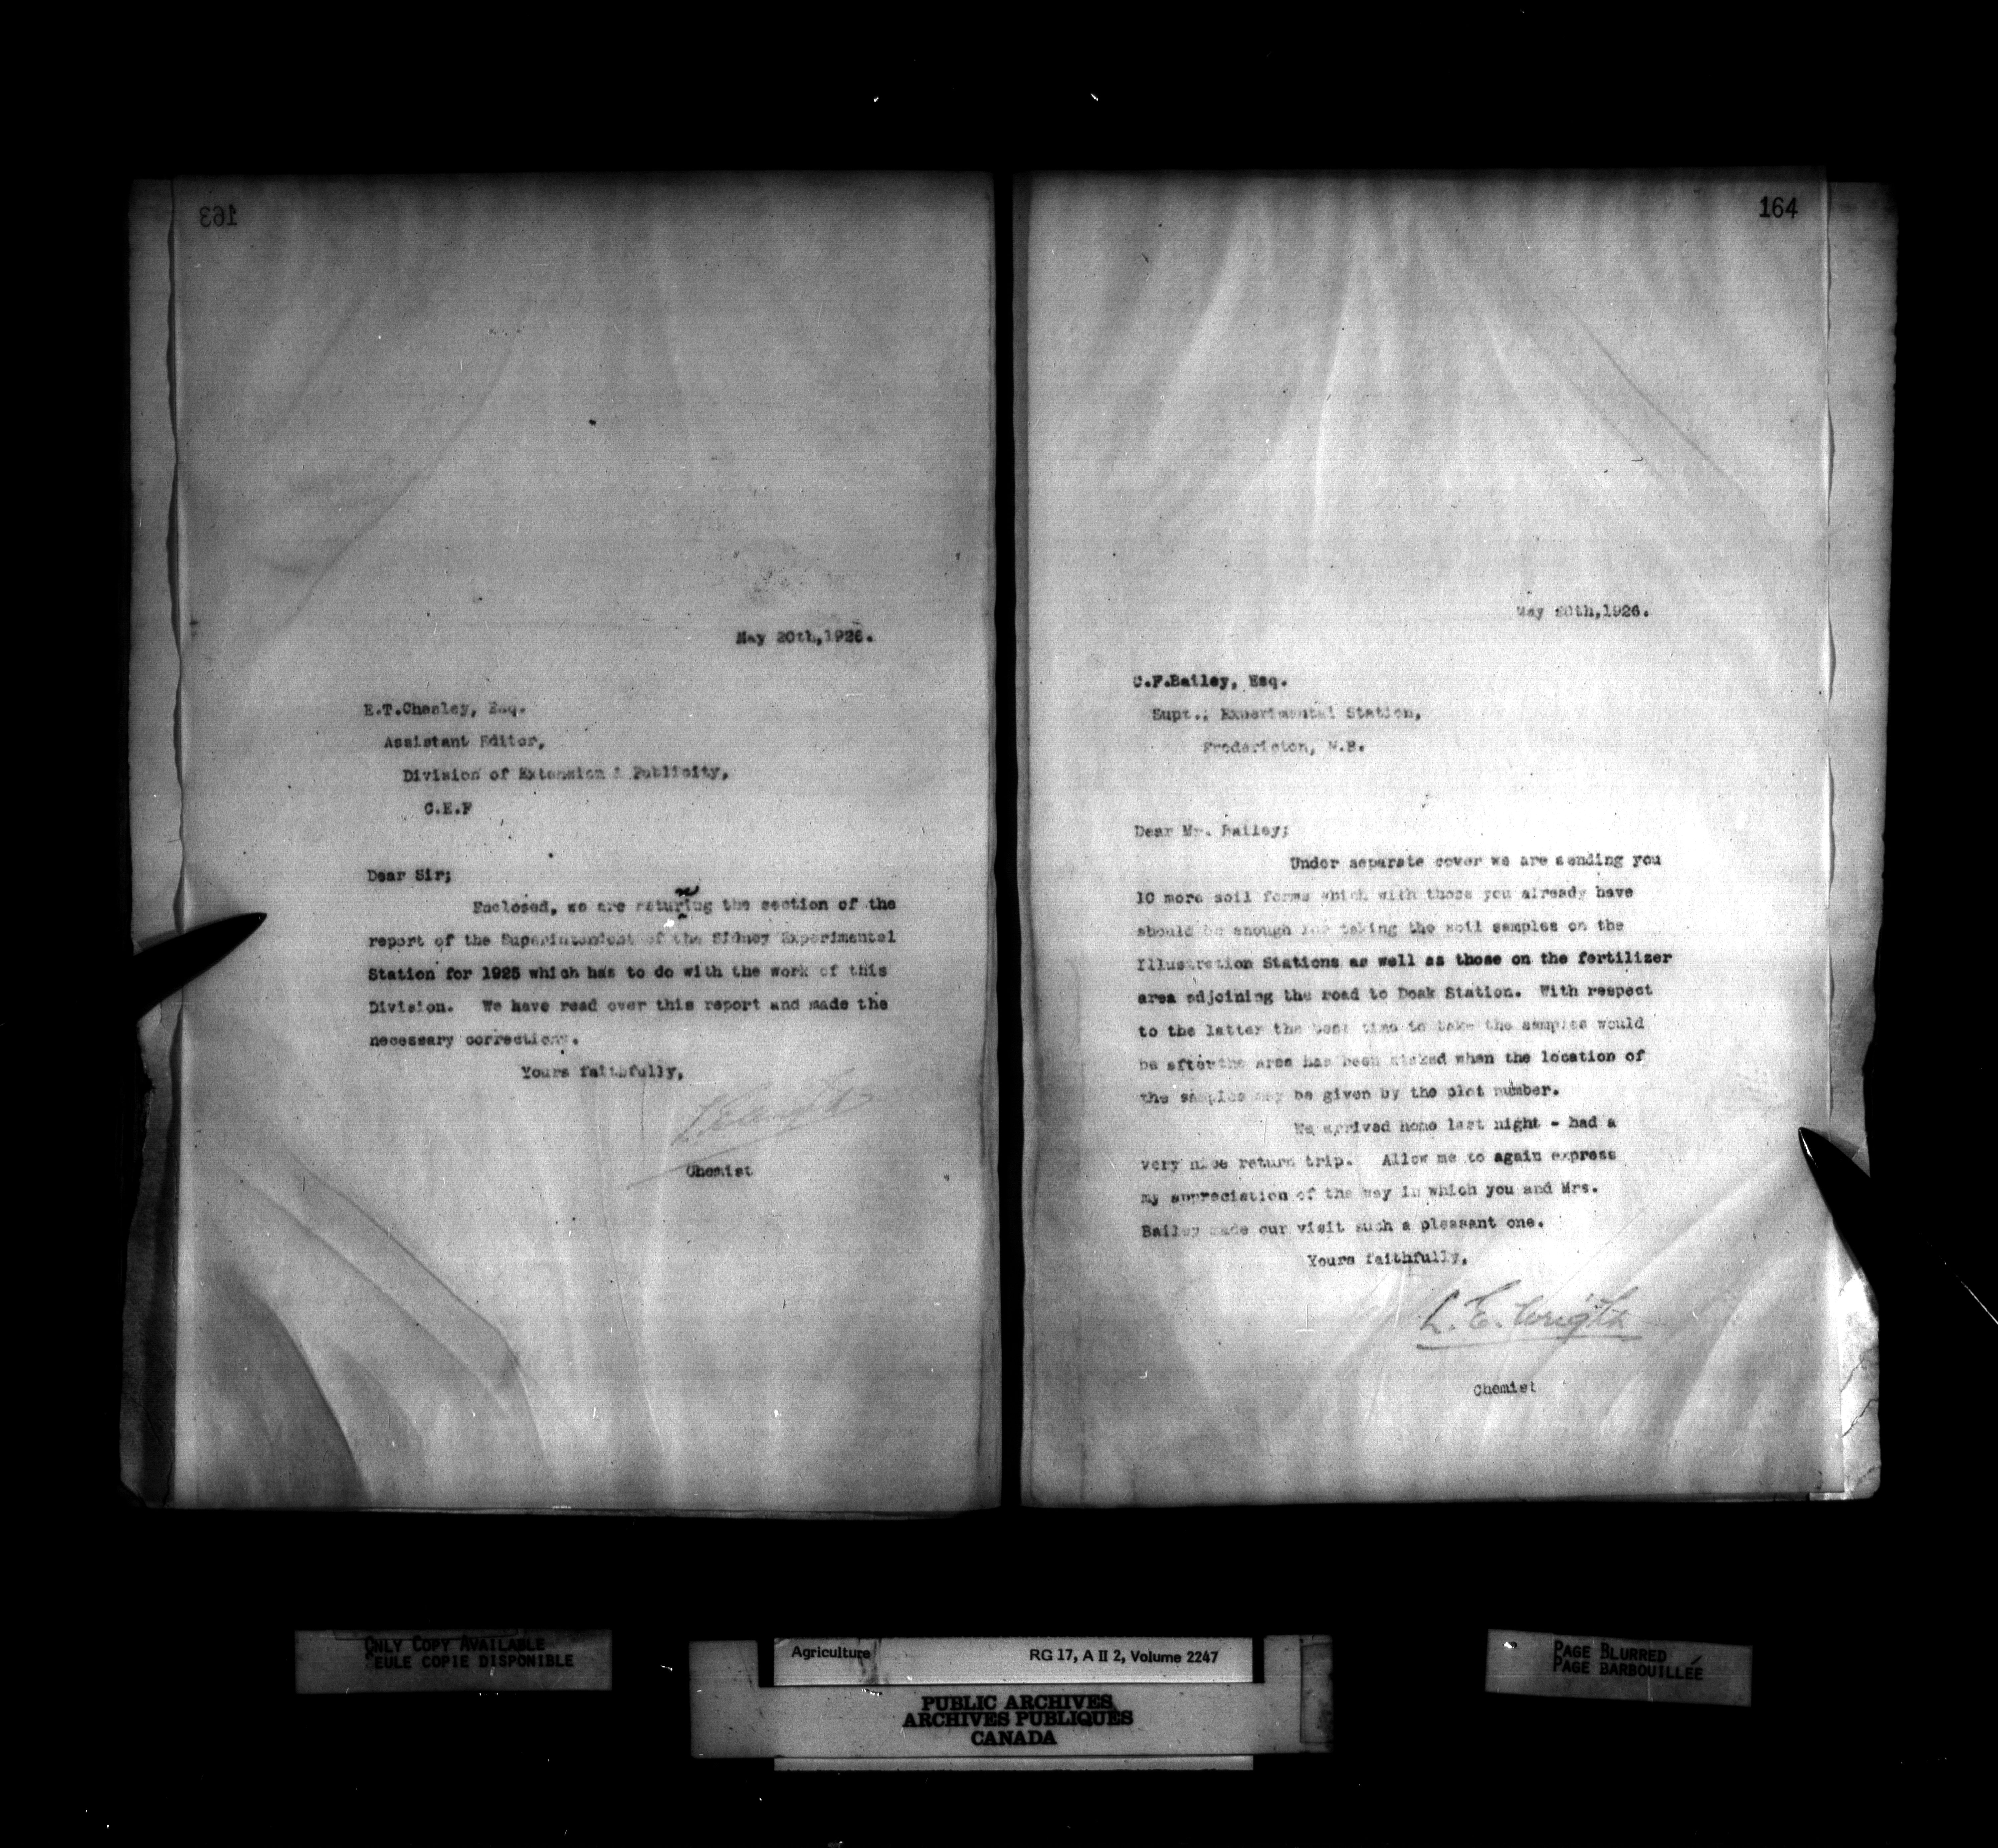 163
May 20th,1926.
E.T.Chesley, Esq.
Assistant Editor,
Division of Extension & Publicity,
C.E.F
Dear Sir;
n
Enclosed, we are returing the section of the
report of the Superintendent of the Sidney Experimental
Station for 1925 which has to do with the work of this
Division. We have read over this report and made the
necessary corrections.
Yours faithfully,
L.E. Wright
Chemist
164
May 20th,1926.
C.F.Bailey, Esq.
Supt., Experimental Station,
Fredericton, N.B.
Dear Mr. Bailey;
Under separate cover we are sending you
10 more soil forms which with those you already have
should be enough for taking the soil samples on the
Illustration Stations as well as those on the fertilizer
area adjoining the road to Doak Station. With respect
to the latter the best time to take the samples would
be after the area has been staked when the location of
the samples may be given by the plot number.
We arrived home last night - had a
very nice return trip. Allow me to again express
my appreciation of the way in which you and Mrs.
Bailey made our visit such a pleasant one.
Yours faithfully,
L. E. Wright
Chemist
ONLY COPY AVAILABLE
SEULE COPIE DISPONIBLE
Agriculture RG 17, A II 2, Volume 2247
PUBLIC ARCHIVES
ARCHIVES PUBLIQUES
CANADA
PAGE BLURRED
PAGE BARBOUILLÉE